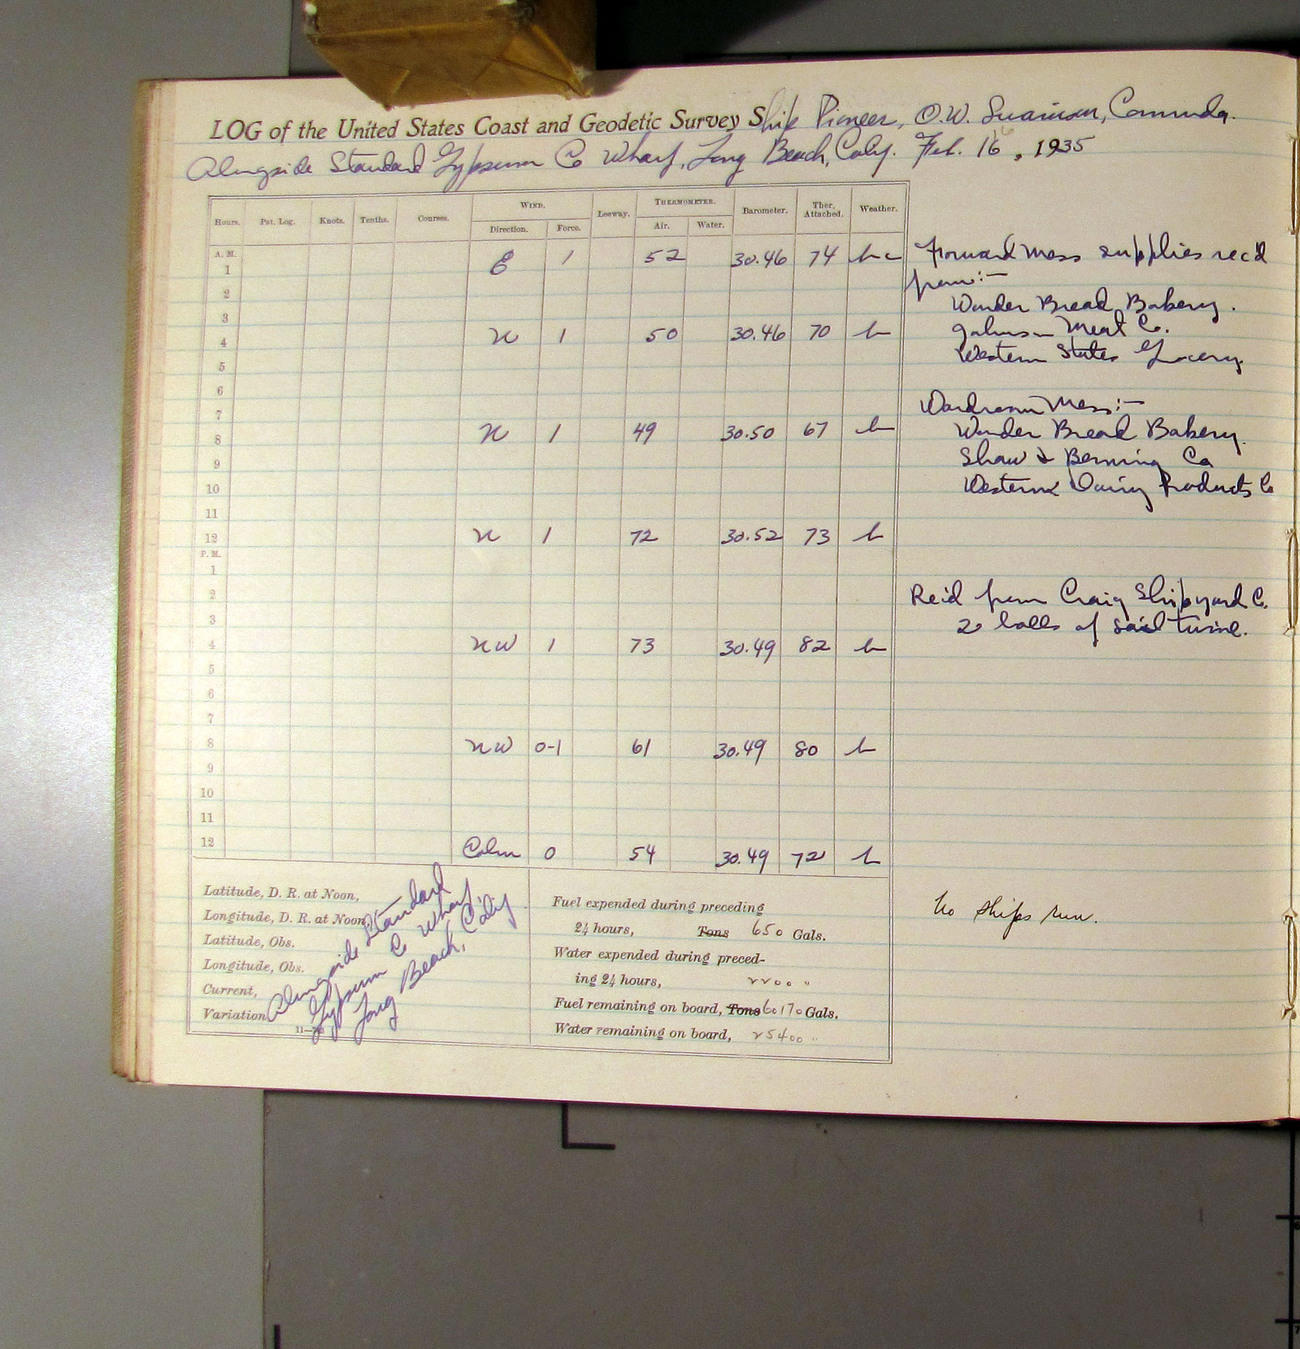 LOG of the United States Coast and Geodetic Survey Ship Pioneer, O.W. Swainson, Commndg.
Alongside Standard Gypsum Co Wharf, Long Beach, Calif. Feb. 16, 1935
Hours. Pat. Log. Knots. Tenths. Courses. WIND. Leeway. THERMOMETER. Barometer. Ther. Attached. Weather.
Direction. Force. Air. Water.
A. M.
1 E 1 52 30.46 74 bc
2
3
4 N 1 50 30.46 70 b
5
6
7
8 N 1 49 30.50 67 b
9
10
11
12 N 1 72 30.52 73 b
P. M.
1
2
3
4 NW 1 73 30.49 82 b
5
6
7
8 NW 0-1 61 30.49 80 b
9
10
11
12 Calm 0 54 30.49 72 b
Forward Mess supplies rec'd
from:-
Wonder Bread Bakery.
Johnson Meat Co.
Western States Grocery
Wardroom Mess:-
Wonder Bread Bakery.
Shaw & Berning Co
Western Dairy Products Co
Rec'd from Craig Shipyard Co.
20 balls of sail twine.
No ships run.
Latitude, D. R. at Noon,
Longitude, D. R. at Noon,
Latitude, Obs.
Longitude, Obs.
Current,
Variation
Alongside Standard
Gypsum Co Wharf
Long Beach, Calif
Fuel expended during preceding
24 hours, Tons 650 Gals.
Water expended during preced-
ing 24 hours, 2200 "
Fuel remaining on board, Tons 60170 Gals.
Water remaining on board, 25400 "